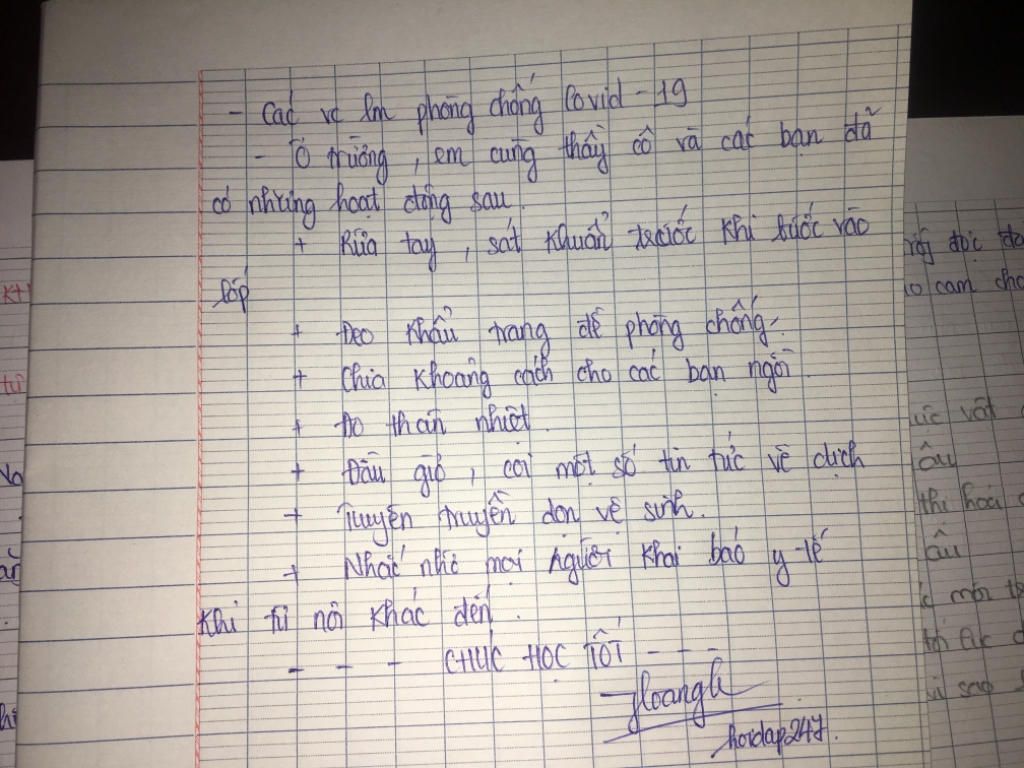 - Các vc làm phòng chống Covid - 19
- Ở trường, em cùng thầy cô và các bạn đã
có những hoạt động sau.
+ Rửa tay, sát khuẩn trước khi bước vào
lớp
+ Đeo khẩu trang để phòng chống.
+ Chia khoảng cách cho các bạn ngồi
+ Đo thân nhiệt.
+ Đầu giờ, coi một số tin tức về dịch
+ Tuyên truyền dọn vệ sinh.
+ Nhắc nhở mọi người khai báo y tế
khi từ nơi khác đến.
- - - CHÚC HỌC TỐT - - -
hoidap247.